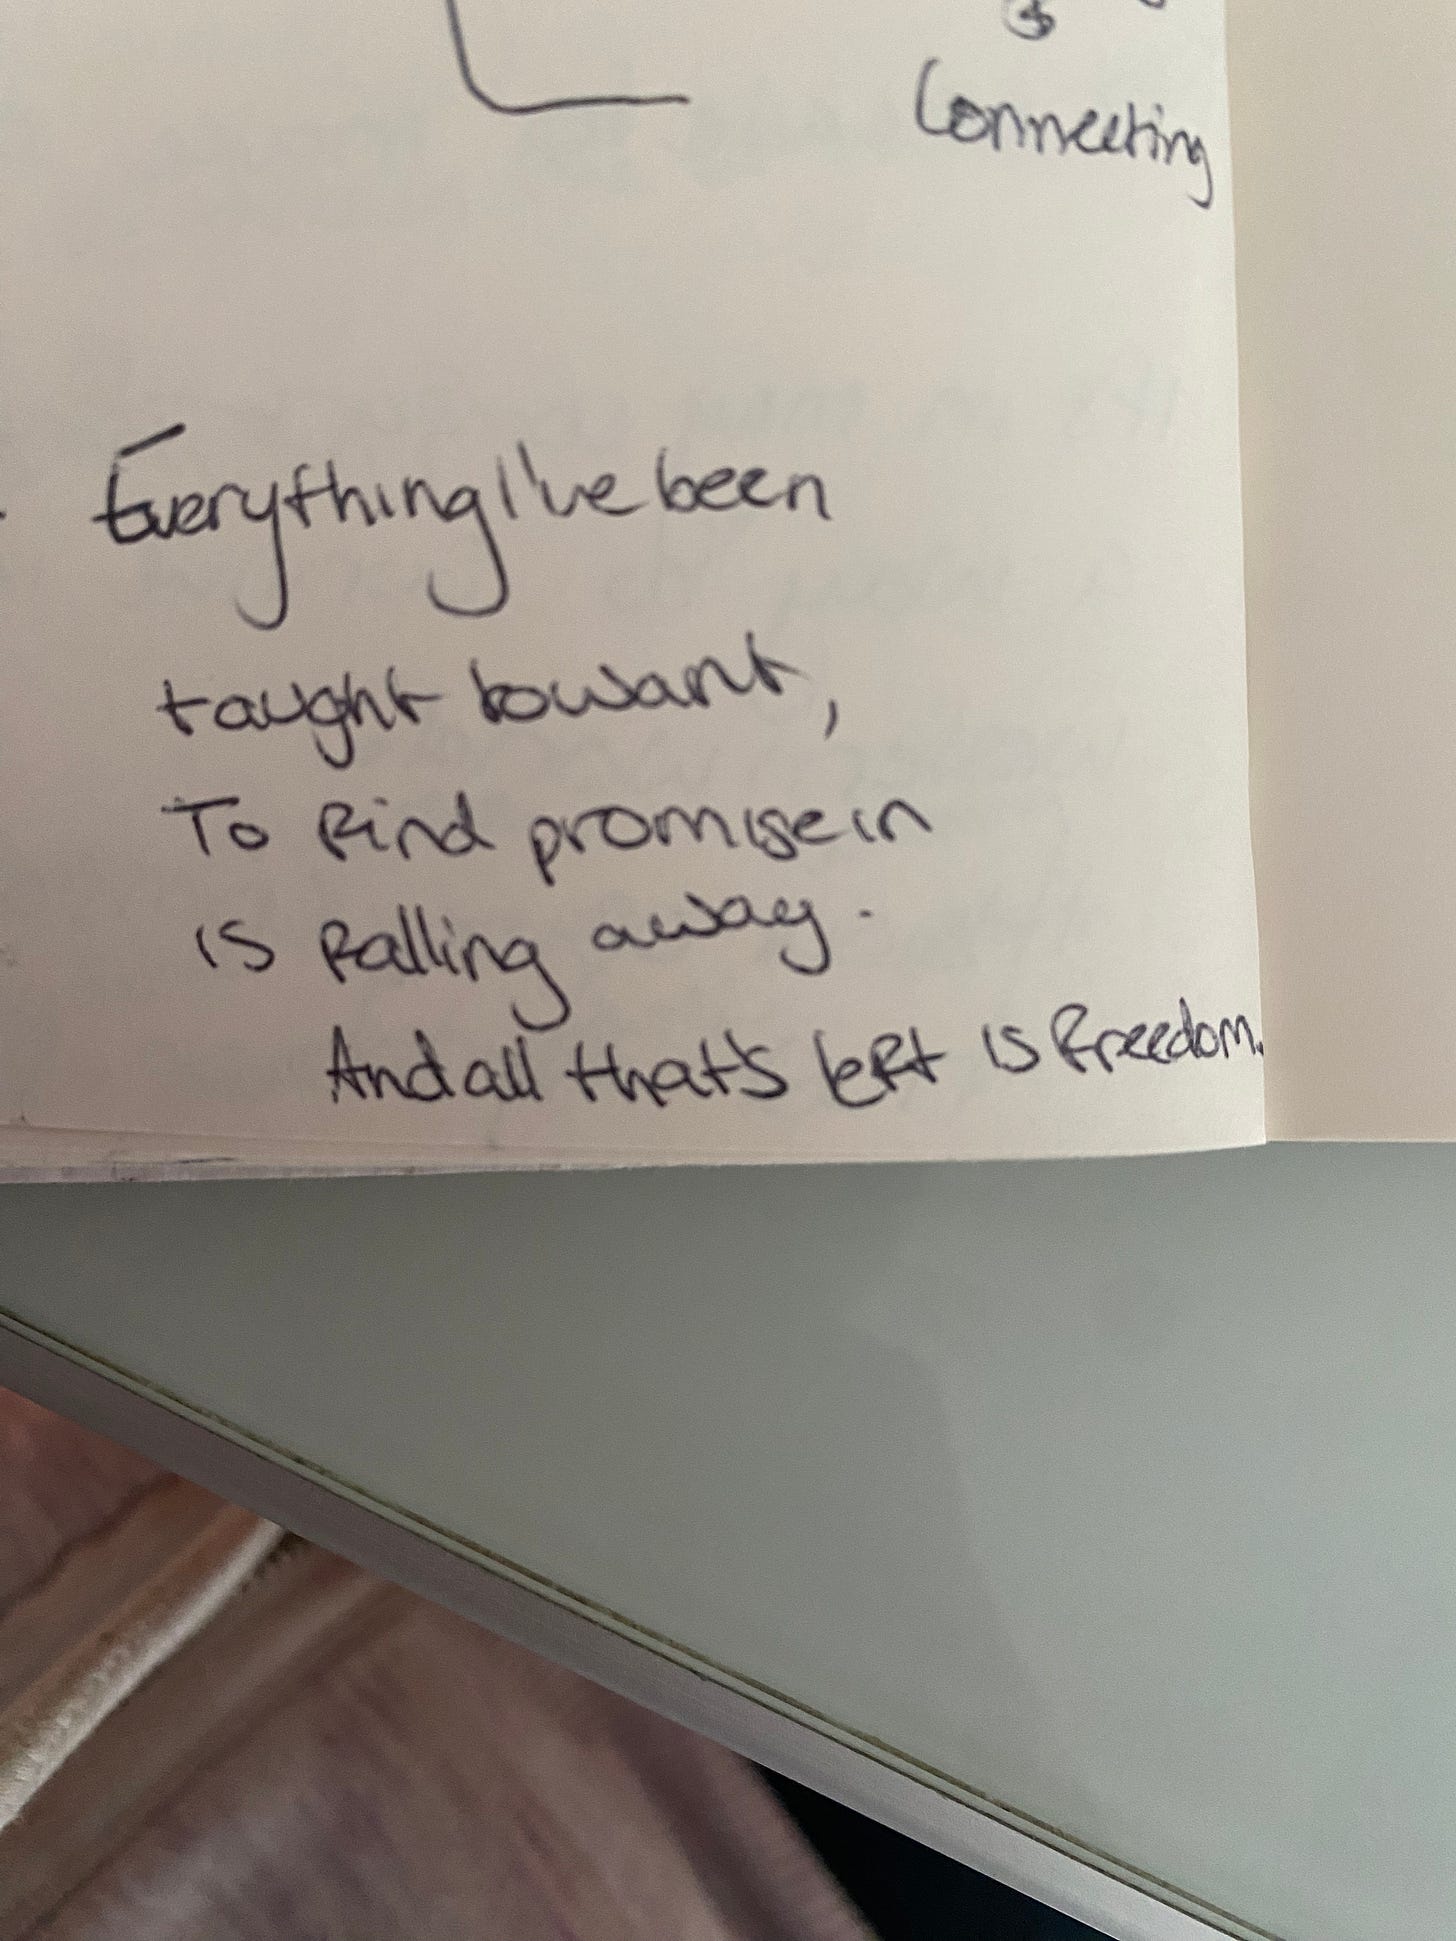 Connecting
Everything I've been
taught to want,
To find promise in
is falling away.
And all that's left is freedom.